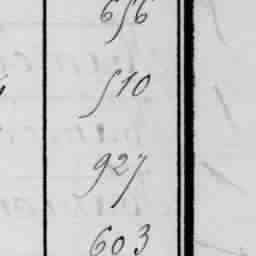 656
510
927
603